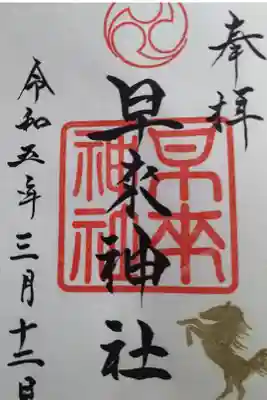 奉拝
早來神社
早来神社
令和五年三月十二日